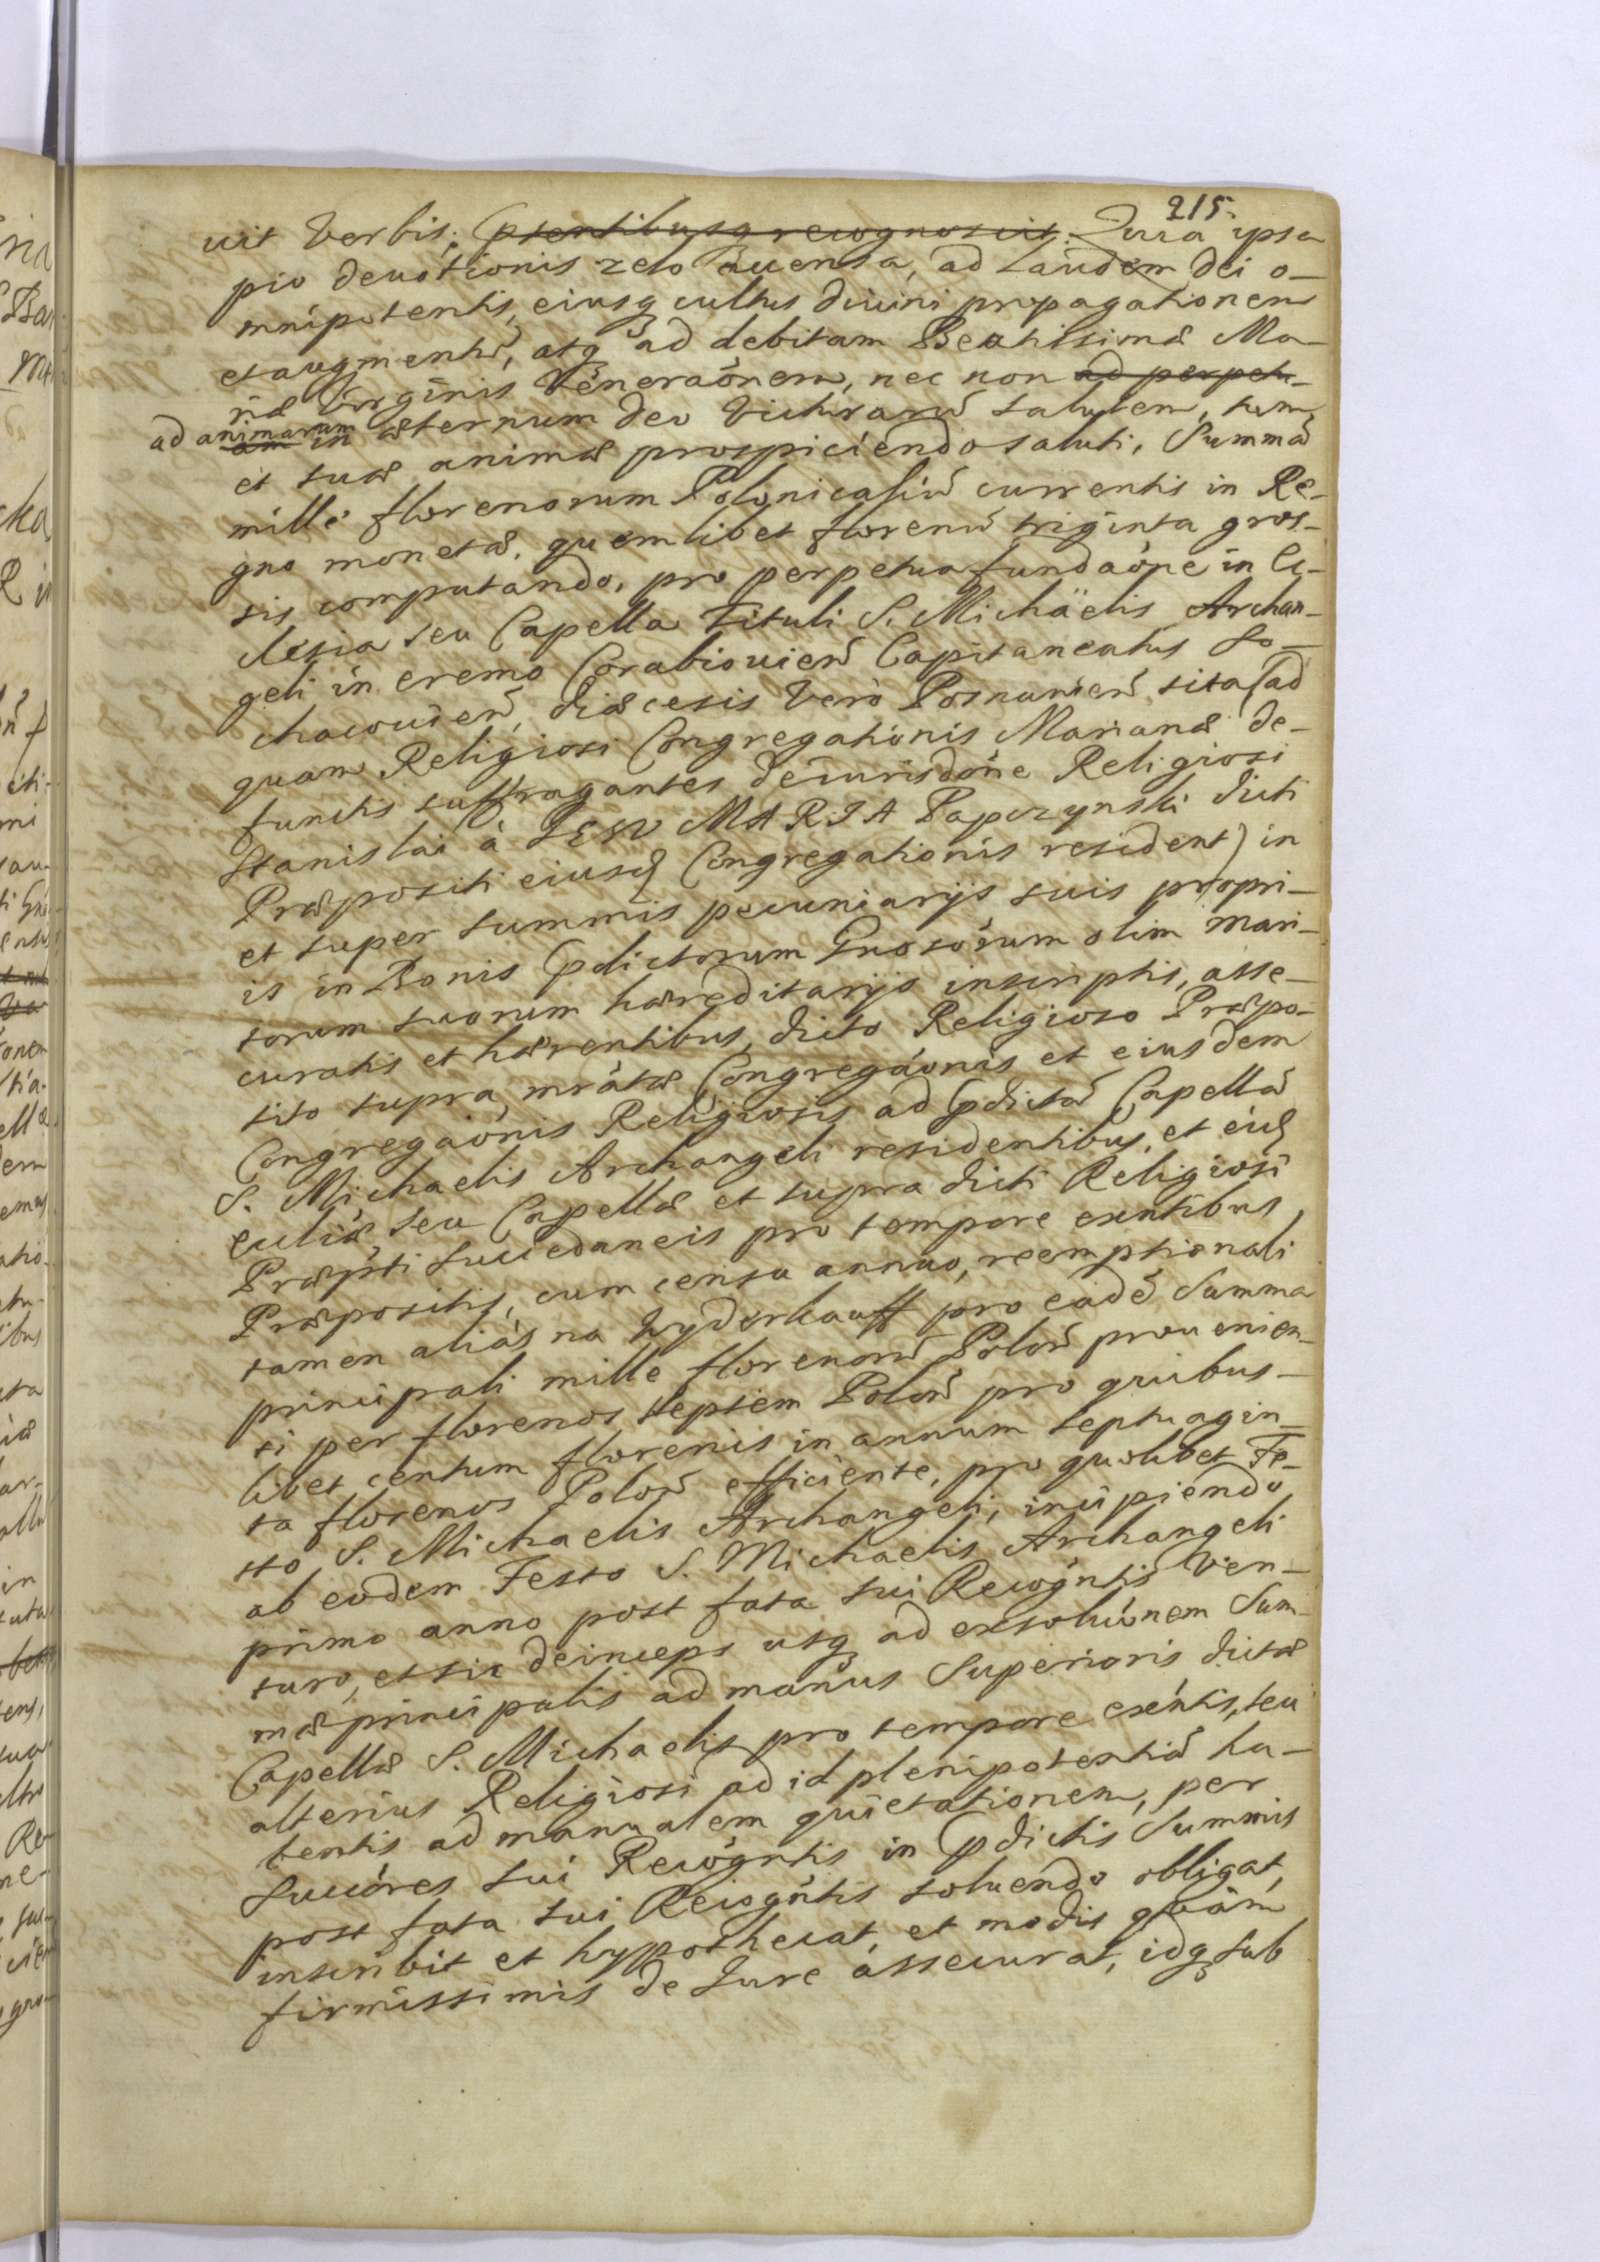 215.
uit Verbis: ptentibusq recognoscit. Quia ipsa
pio deuotionis zelo accensa, ad Laudem Dei o-
mnipotentis, eiusq cultus diuini propagationem
et augmentũ, atq ad debitam Beatissimæ Ma-
riæ Virginis Veneraõnem, nec non ad perpetu-
ad animarum am in æternum Deo Victurarũ salutem, tum
et suæ animæ prospiciendo saluti, Summã
mille florenorum Polonicaliũ currentis in Re-
gno monetæ, quemlibet florenũ triginta gros-
sis computando, pro perpetua fundaõne in Ec-
clesia seu Capella Tituli S. Michäelis Archan-
geli in eremo Corabiouien̄ Capitaneatus So-
chacouien̄, Diæcesis Verò Posnanien̄ sita (ad
quam Religiosi Congregationis Marianæ de-
functis suffragantes de iurisdõne Religiosi
Stanislai à IESV MARIA Papczynski dicti
Præpositi eiusd Congregationis resident) in
et super summis pecuniarijs suis propri-
is in Bonis pdictorum Gnosorum olim Mari-
torum suorum hæreditarijs inscriptis, asse-
curatis et hærentibus, dicto Religioso Præpo-
sito supra mrãtæ Congregaõnis et eiusdem
Congregaõnis Religiosis ad pdictã Capellã
S. Michaelis Archangeli residentibus, et eiusd
eccliæ seu Capellæ et supra dicti Religiosi
Præpti succedaneis pro tempore exntibus
Præpositis, cum censu annuo, reemptionali
tamen aliàs na Wyderkauff pro eadẽ Summa
principali mille florenorũ Polon̄ prouenien-
ti per florenos septem Polon̄ pro quibus-
libet centum florenis in annum septuagin-
ta florenos Polon̄ efficiente, pro quolibet Fe-
sto S. Michaelis Archangeli, incipiendo
ab eodem Festo S. Michaelis Archangeli
primo anno post fata sui Recogntis Ven-
turo, et sic deinceps usq ad exsoluõnem Sum-
mæ principalis ad manus Superioris dictæ
Capellæ S. Michaelis pro tempore exẽntis, seu
alterius Religiosi ad id plenipotentiã ha-
bentis ad manualem quietationem, per
Succõres sui Recogntis in pdictis Summis
post fata sui Recogntis soluendo obligat,
inscribit et hypothecat, et modis quàm
firmissimis de Iure assecurat, idq sub